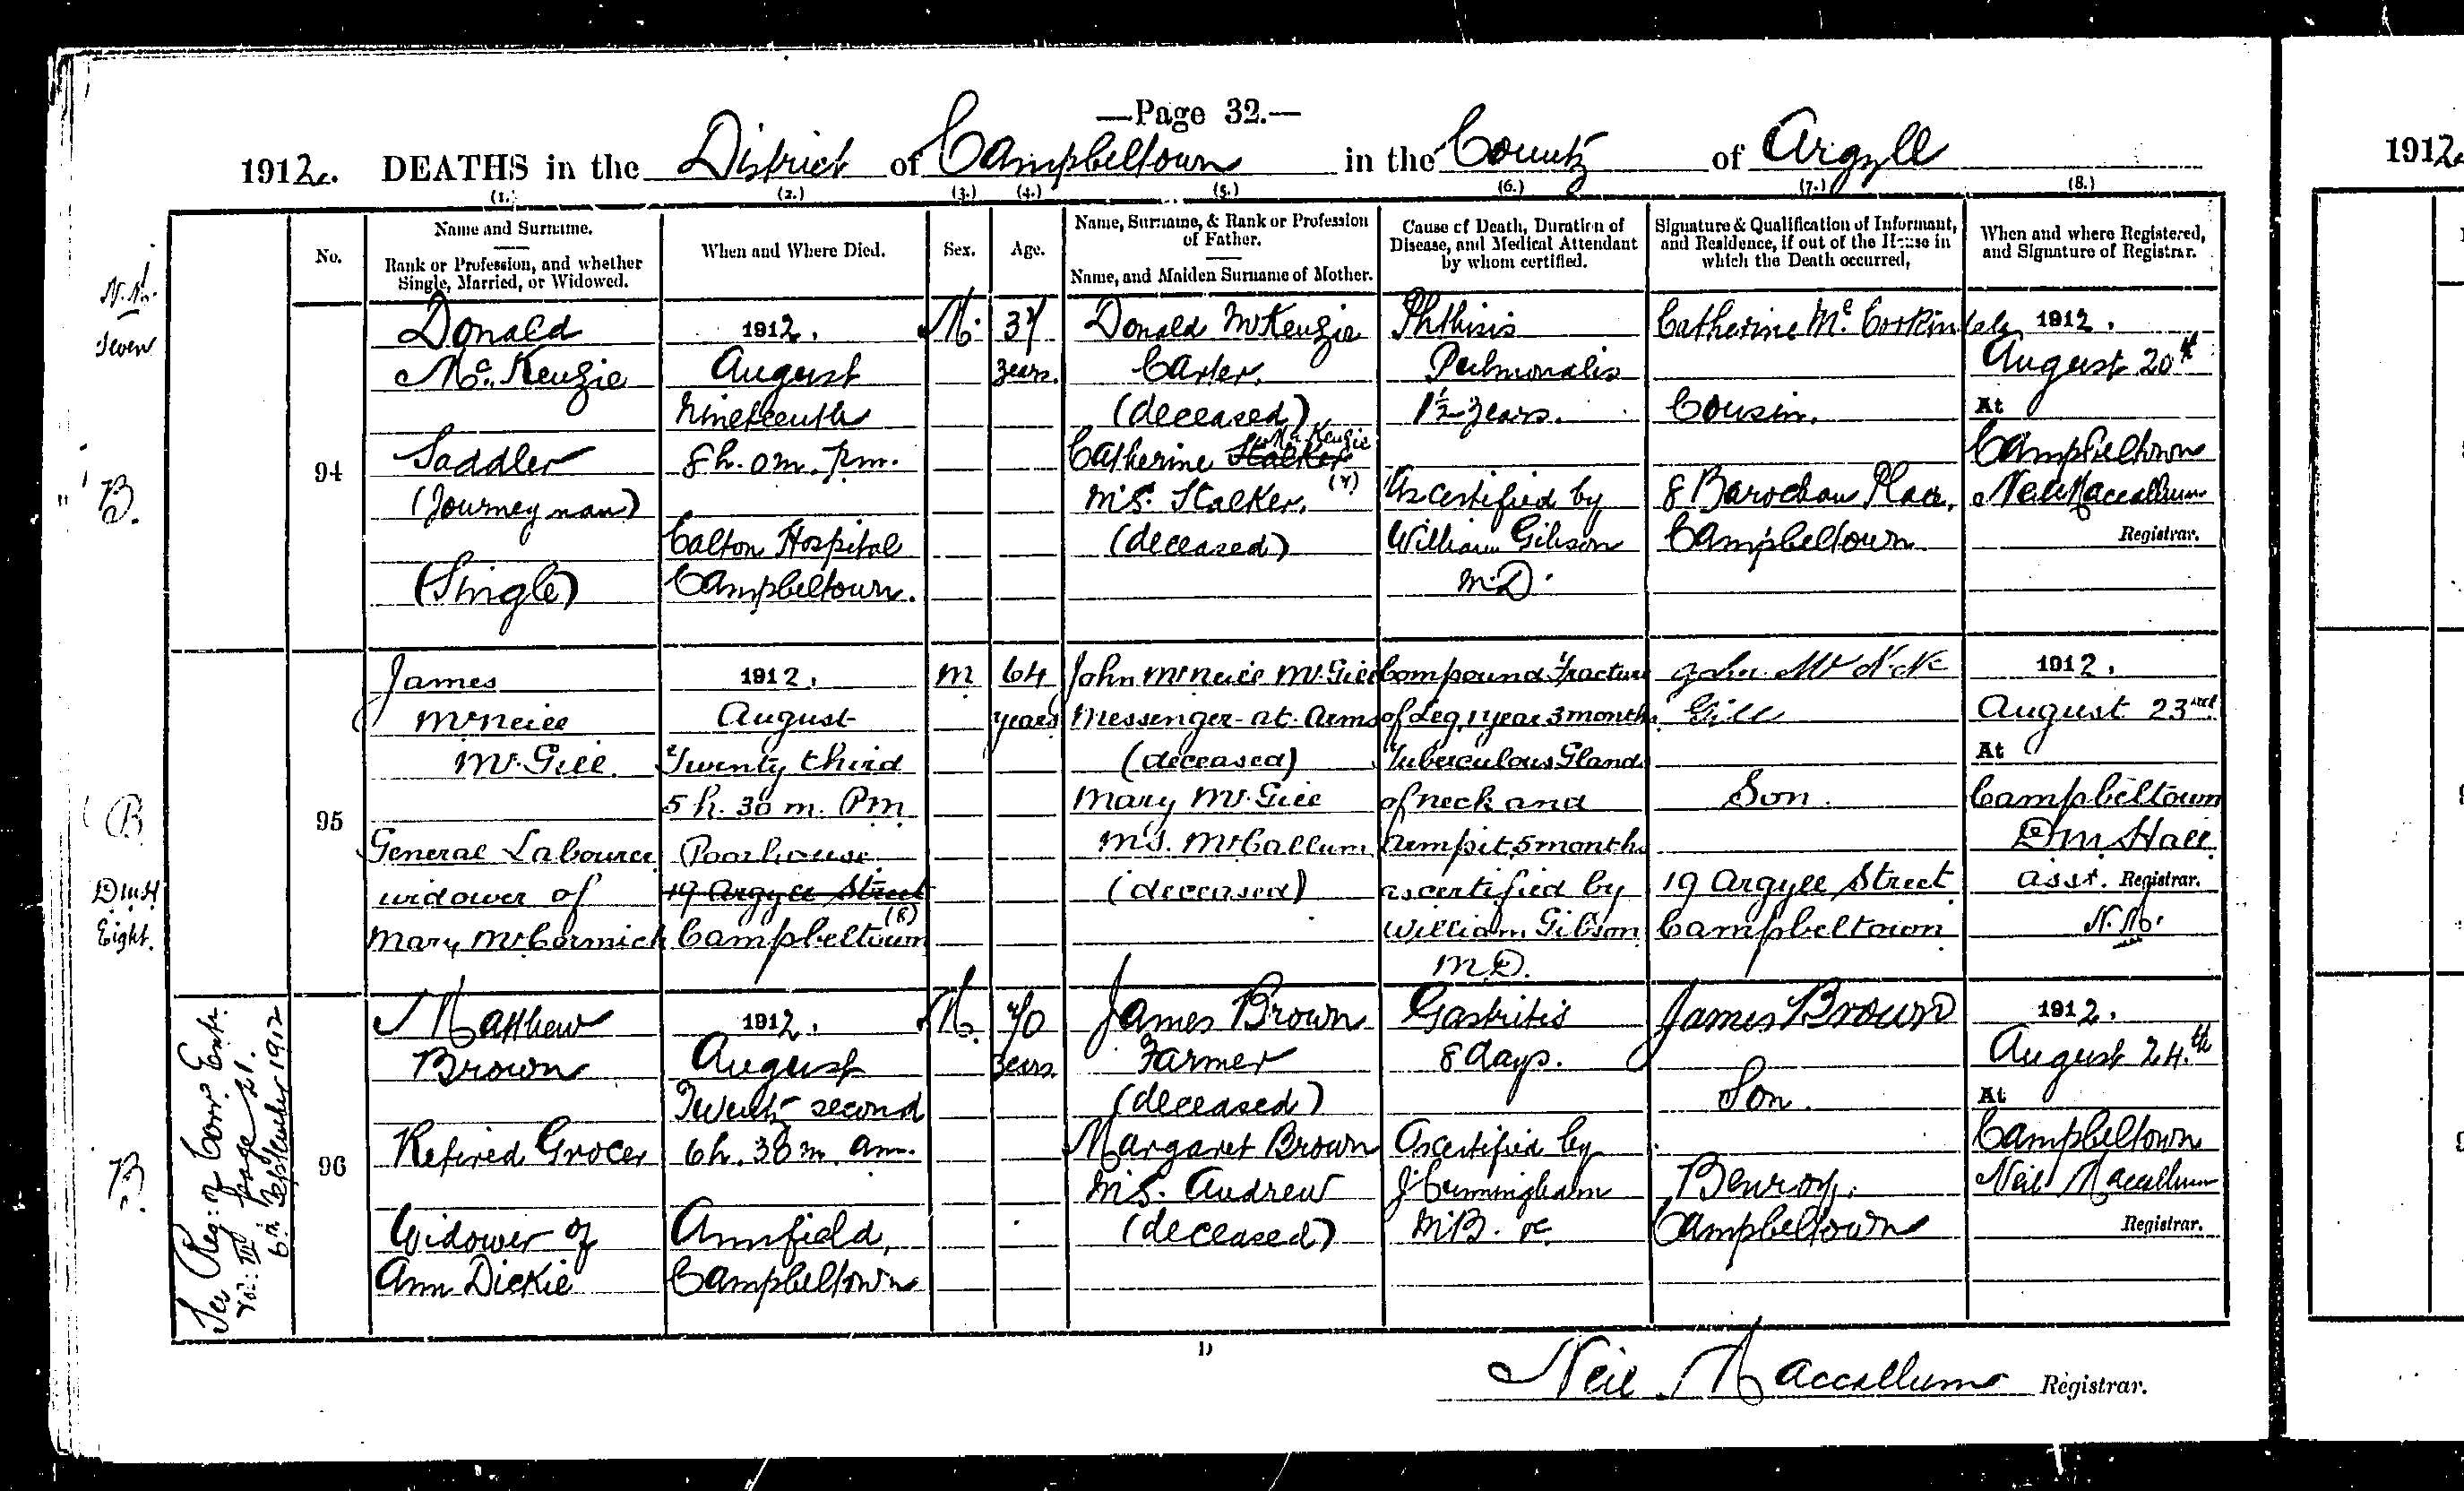 —Page 32.—
1912. DEATHS in the District of Campbeltown in the County of Argyll
(1.) (2.) (3.) (4.) (5.) (6.) (7.) (8.)
No.
Name and Surname.
Rank or Profession, and whether
Single, Married, or Widowed.
When and Where Died.
Sex.
Age.
Name, Surname, & Rank or Profession
of Father.
Name, and Maiden Surname of Mother.
Cause of Death, Duration of
Disease, and Medical Attendant
by whom certified.
Signature & Qualification of Informant,
and Residence, if out of the House in
which the Death occurred,
When and where Registered,
and Signature of Registrar.
N. Mc.
Seven
B.
94
Donald
McKenzie
Saddler
(Journeyman)
(Single)
1912.
August
Nineteenth
8h. 0m. P.m.
Calton Hospital
Campbeltown.
M.
37
years.
Donald McKenzie
Carter.
(deceased)
McKenzie
Catherine Stalker
(7)
M.S. Stalker.
(deceased)
Phthisis
Pulmonalis
1½ years.
As certified by
William Gibson
M.D.
Catherine McCorkindale
Cousin.
8 Barochan Place,
Campbeltown
1912.
August 20th
At
Campbeltown
Neil Maccallum
Registrar.
B
DMH
Eight.
95
James
McNeill
McGill.
General Labourer
widower of
Mary McCormick
1912.
August
Twenty third
5 h. 30 m. P.m.
Poorhouse
19 Argyll Street
(8)
Campbeltown
M
64
years
John McNeill McGill
Messenger-at-Arms
(deceased)
Mary McGill
M.S. McCallum
(deceased)
Compound Fracture
of Leg, 1 year 3 months.
Tuberculous Glands
of neck and
Armpit, 5 months
as certified by
William Gibson
M.D.
John Mc N. Mc
Gill
Son.
19 Argyll Street
Campbeltown
1912.
August 23rd
At
Campbeltown
D.M. Hall
asst. Registrar.
N. M.
B.
See Reg: of Corr. Ent:
Vol: III page 21.
6th September 1912
96
Matthew
Brown
Retired Grocer
Widower of
Ann Dickie
1912.
August
Twenty second
6h. 30 m. a.m.
Annfield,
Campbeltown
M.
70
years.
James Brown
Farmer
(deceased)
Margaret Brown
M.S. Andrew
(deceased)
Gastritis
8 days.
As certified by
J Cunningham
M.B. &c.
James Brown
Son.
Benroy.
Campbeltown
1912.
August 24.th
At
Campbeltown
Neil Maccallum
Registrar.
D
Neil Maccallum Registrar.
1912